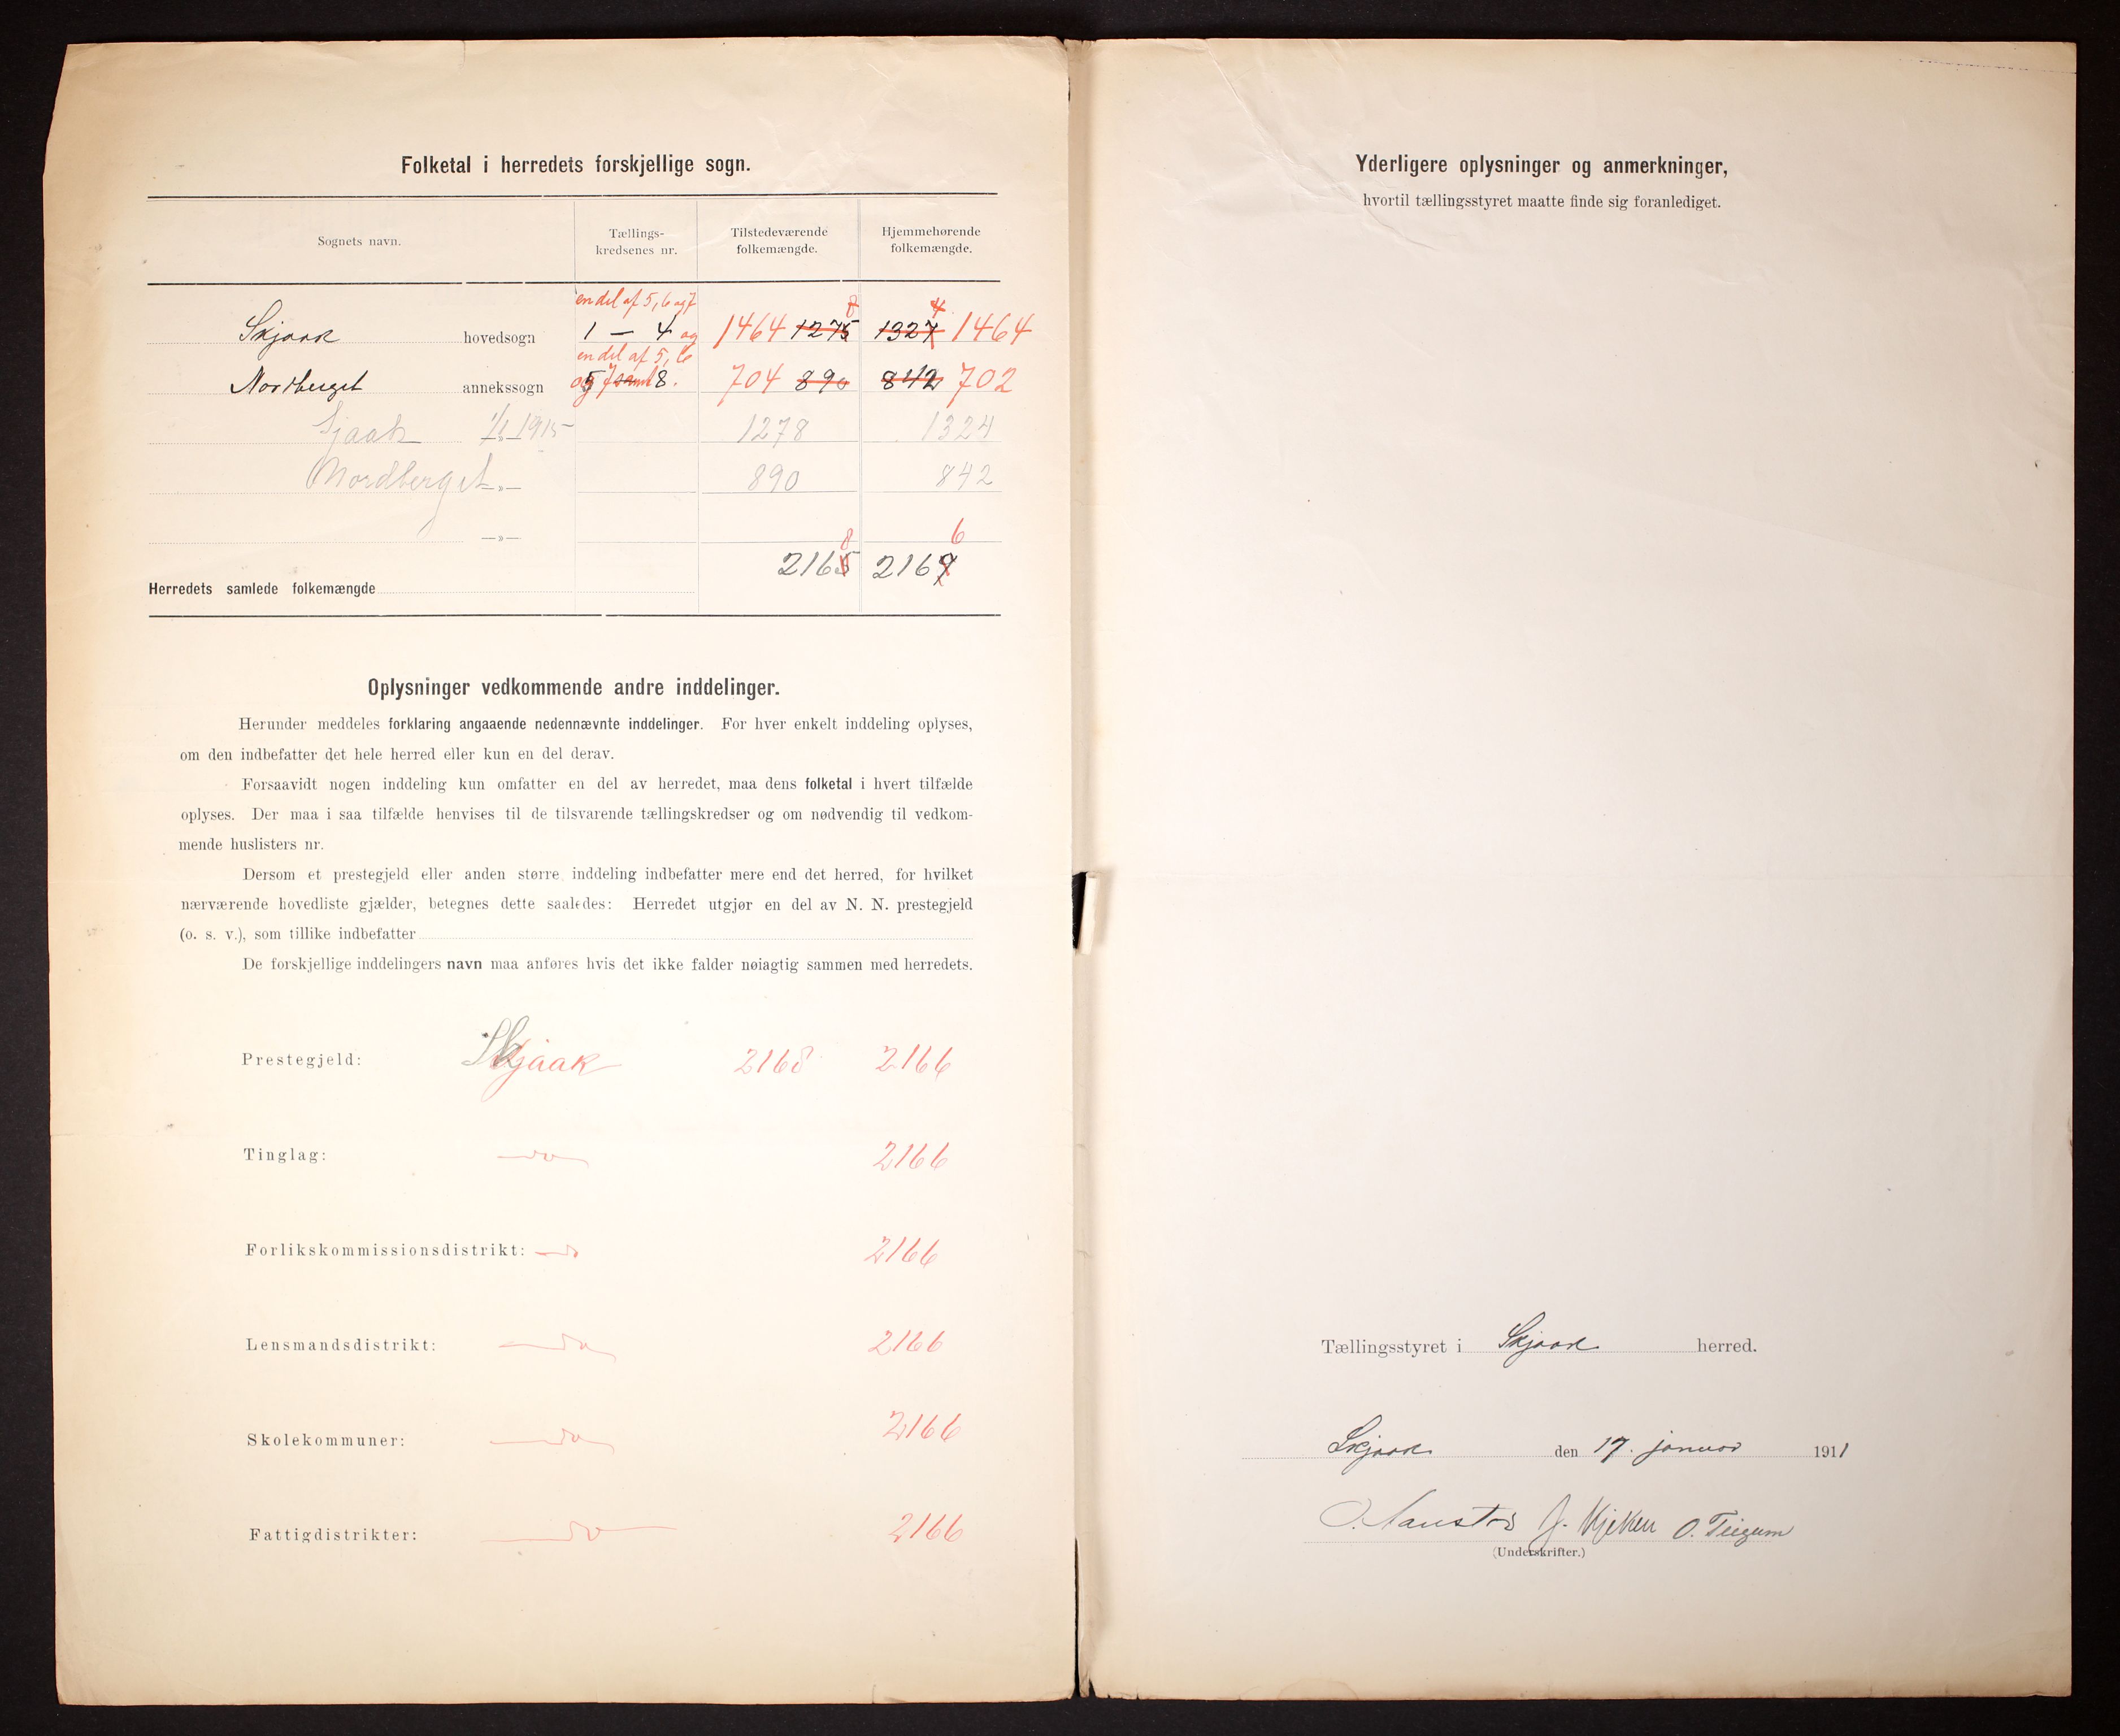 Folketal i herredets forskjellige sogn.
Sognets navn.
Tællings-
kredsenes nr.
Tilstedeværende
folkemængde.
Hjemmehørende
folkemængde.
en del af 5, 6 og 7
8
4
Skjaak hovedsogn 1 — 4 og 1464 1275 1327 1464
en del af 5, 6
Nordberget annekssogn og 7 samt 8. 704 890 842 702
Sjaak 1/1 1915 1278 1324
Nordberget —»— 890 842
—»—
8 6
Herredets samlede folkemængde 2165 2169
Oplysninger vedkommende andre inddelinger.
Herunder meddeles forklaring angaaende nedennævnte inddelinger. For hver enkelt inddeling oplyses,
om den indbefatter det hele herred eller kun en del derav.
Forsaavidt nogen inddeling kun omfatter en del av herredet, maa dens folketal i hvert tilfælde
oplyses. Der maa i saa tilfælde henvises til de tilsvarende tællingskredser og om nødvendig til vedkom-
mende huslisters nr.
Dersom et prestegjeld eller anden større inddeling indbefatter mere end det herred, for hvilket
nærværende hovedliste gjælder, betegnes dette saaledes: Herredet utgjør en del av N. N. prestegjeld
(o. s. v.), som tillike indbefatter
De forskjellige inddelingers navn maa anføres hvis det ikke falder nøiagtig sammen med herredets.
Prestegjeld: Skjaak 2168 2166
Tinglag: do 2166
Forlikskommissionsdistrikt: do 2166
Lensmandsdistrikt: do 2166
Skolekommuner: do 2166
Fattigdistrikter: do 2166
Yderligere oplysninger og anmerkninger,
hvortil tællingsstyret maatte finde sig foranlediget.
Tællingsstyret i Skjaak herred.
Skjaak den 17. januar 1911
O. Teigum
(Underskrifter.)